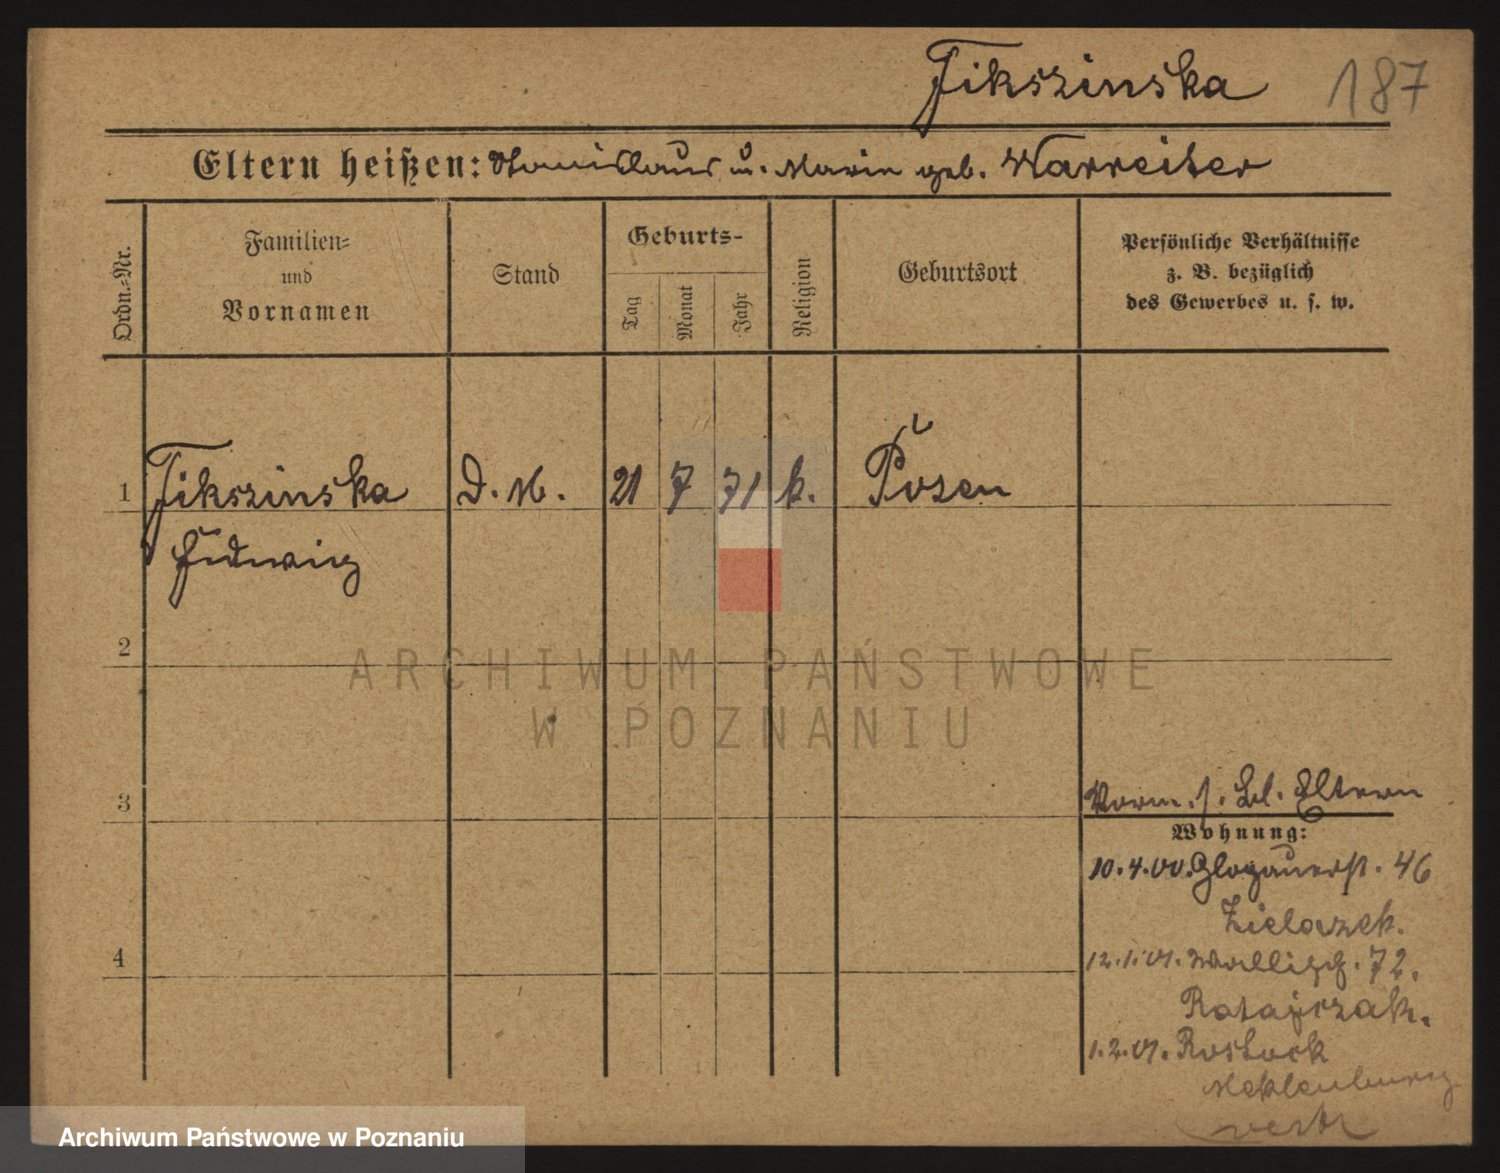 Fikszinska 187
Eltern heißen: Stanislaus u. Marie geb. Warreiter
Ordn.-Nr.
Familien-
und
Vornamen
Stand
Geburts-
Tag
Monat
Jahr
Religion
Geburtsort
Persönliche Verhältnisse
z. B. bezüglich
des Gewerbes u. s. w.
1 Fikszinska D. M. 21 7 71 k. Posen
Hedwig
2
ARCHIWUM PAŃSTWOWE
W POZNANIU
3
Vorm. s. Bl. Eltern
Wohnung:
10.4.00. Glogauerst. 46
Zielazek.
4
12.1.01. Wallisch. 72.
Ratajczak.
1.2.01. Rostock
Meklenburg
verz
Archiwum Państwowe w Poznaniu